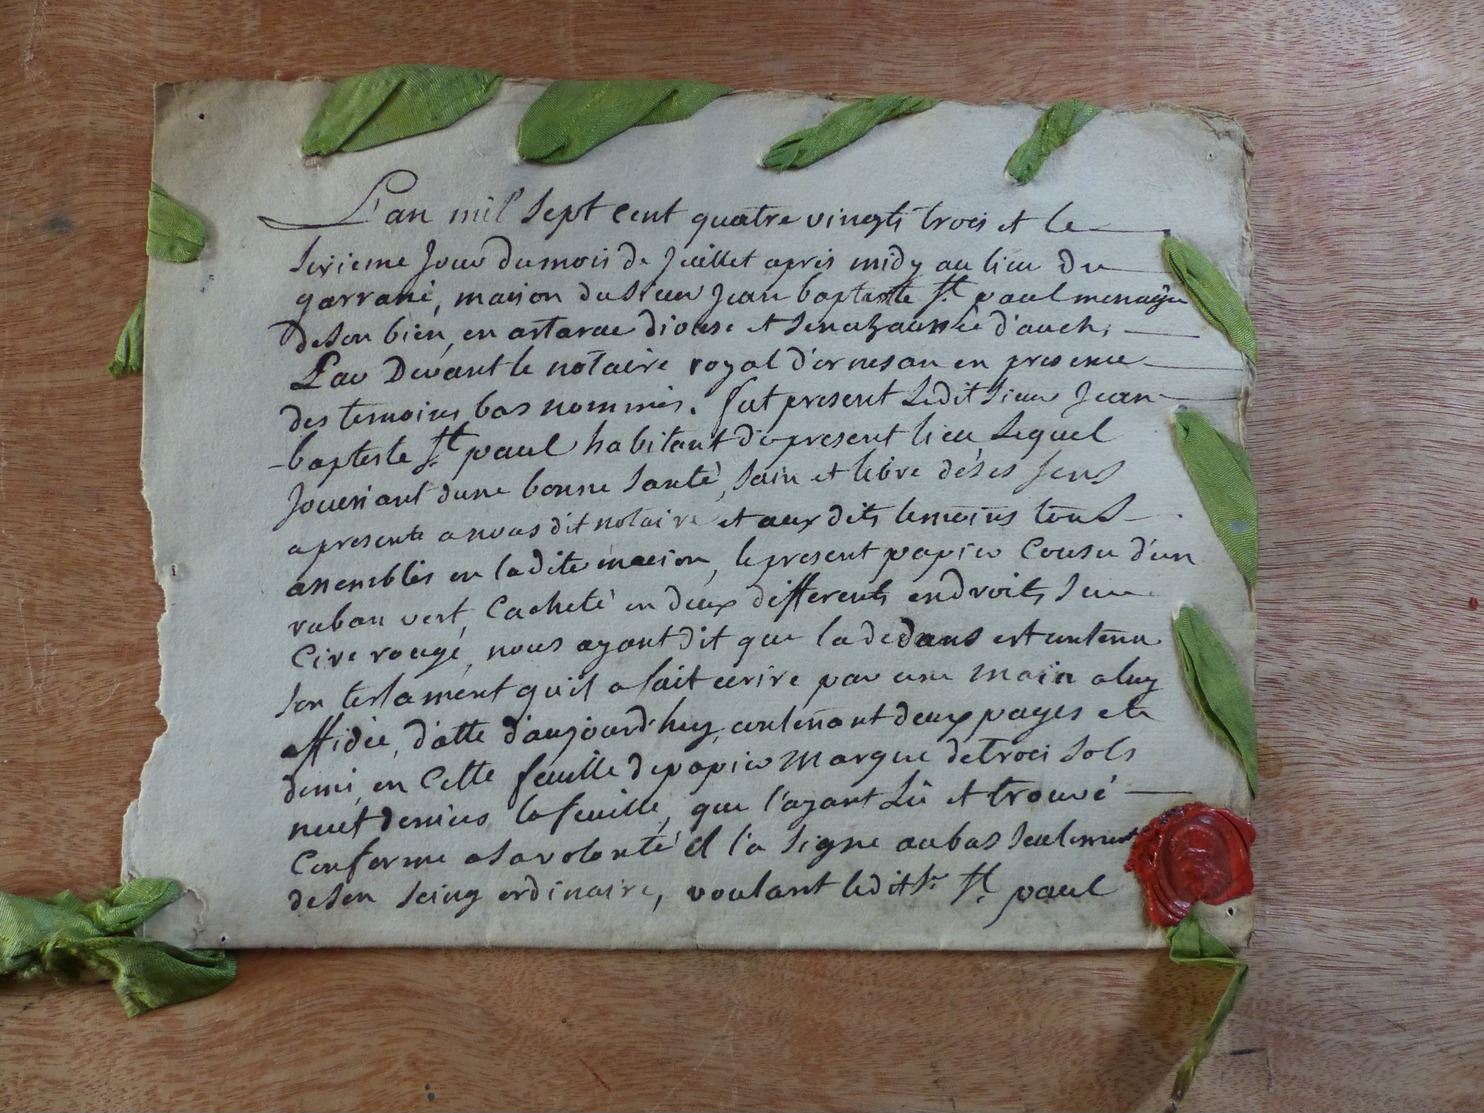 L'an mil sept cent quatre vingts trois et le
seizieme jour du mois de juillet après midy au lieu du
garrané, maison du sieur jean baptiste St. paul menager
de son bien, en astarac diocese et senechaussée d'auch,
Par Devant le notaire royal d'ornesan en presence
des temoins bas nommés. fut present Ledit sieur Jean
-baptiste St. paul habitant du present lieu Lequel
Jouissant dune bonne santé, sain et libre de ses sens
apresenté a nous dit notaire et aux dits temoins tous
assemblés en ladite maison, le present papier Cousu d'un
ruban vert, Cacheté en deux differents endroits sur
Cire rouge, nous ayant dit que la dedans est contenu
son testament qu'il a fait ecrire par une main a luy
affidée, datté d'aujourd'huy, contenant deux pages et
demi, en Cette feuille de papier marqué de trois sols
neuf deniers la feuille, que l'ayant Lû et trouvé
Conforme a sa volonté il l'a signé au bas seulement
de son seing ordinaire, voulant ledit sr. St. paul